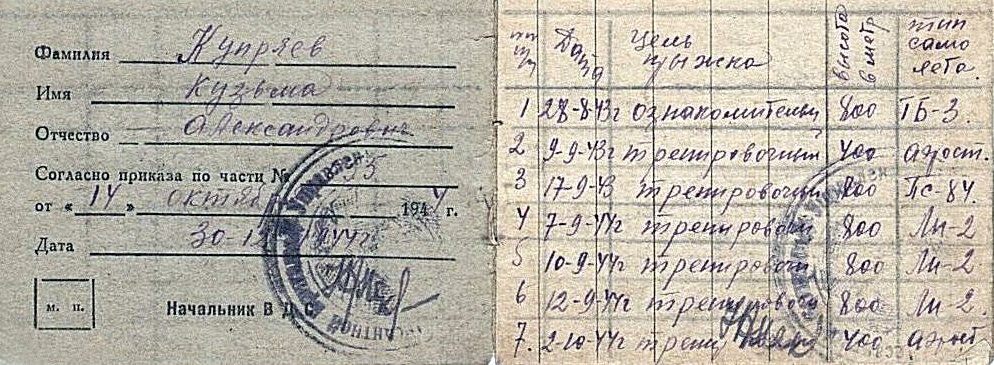 Фамилия Купряев
Имя Кузьма
Отчество Александрович
Согласно приказа по части № 95
от « 14 » октяб 1944 г.
Дата 30-1 1944г
м. п. Начальник В Д
№ п/п Дата Цель прыжка высота в метр тип самолета.
1 28-8-43г ознакомительн 800 ТБ-3.
2 9-9-43г тренировочный 400 аэрост.
3 17-9-43 тренировочный 800 Пс-84.
4 7-9-44г тренировочн 800 Ли-2
5 10-9-44г тренировочн 800 Ли-2
6 12-9-44г тренировочн 800 Ли-2.
7. 2-10-44г трени 400 аэрост